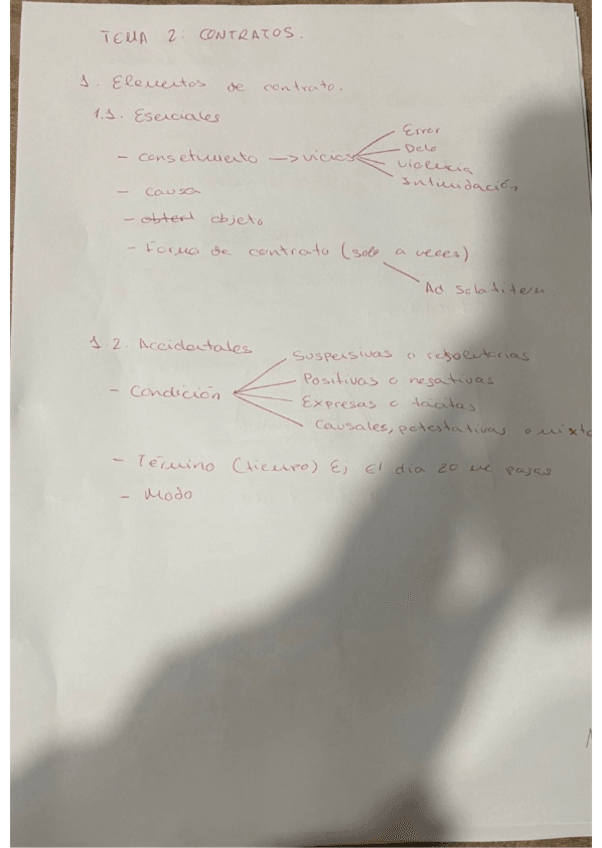 TEMA 2: CONTRATOS.
1. Elementos de contrato.
1.1. Esenciales
- consetimiento → vicios
Error
Dolo
Violencia
Intimidación
- causa
- obtert objeto
- Forma de contrato (solo a veces)
Ad solatitem
1.2. Accidentales
- Condición
Suspensivas o resolutorias
Positivas o negativas
Expresas o tácitas
Causales, potestativas o mixta
- Término (tiempo) Ej El día 20 me pagas
- Modo